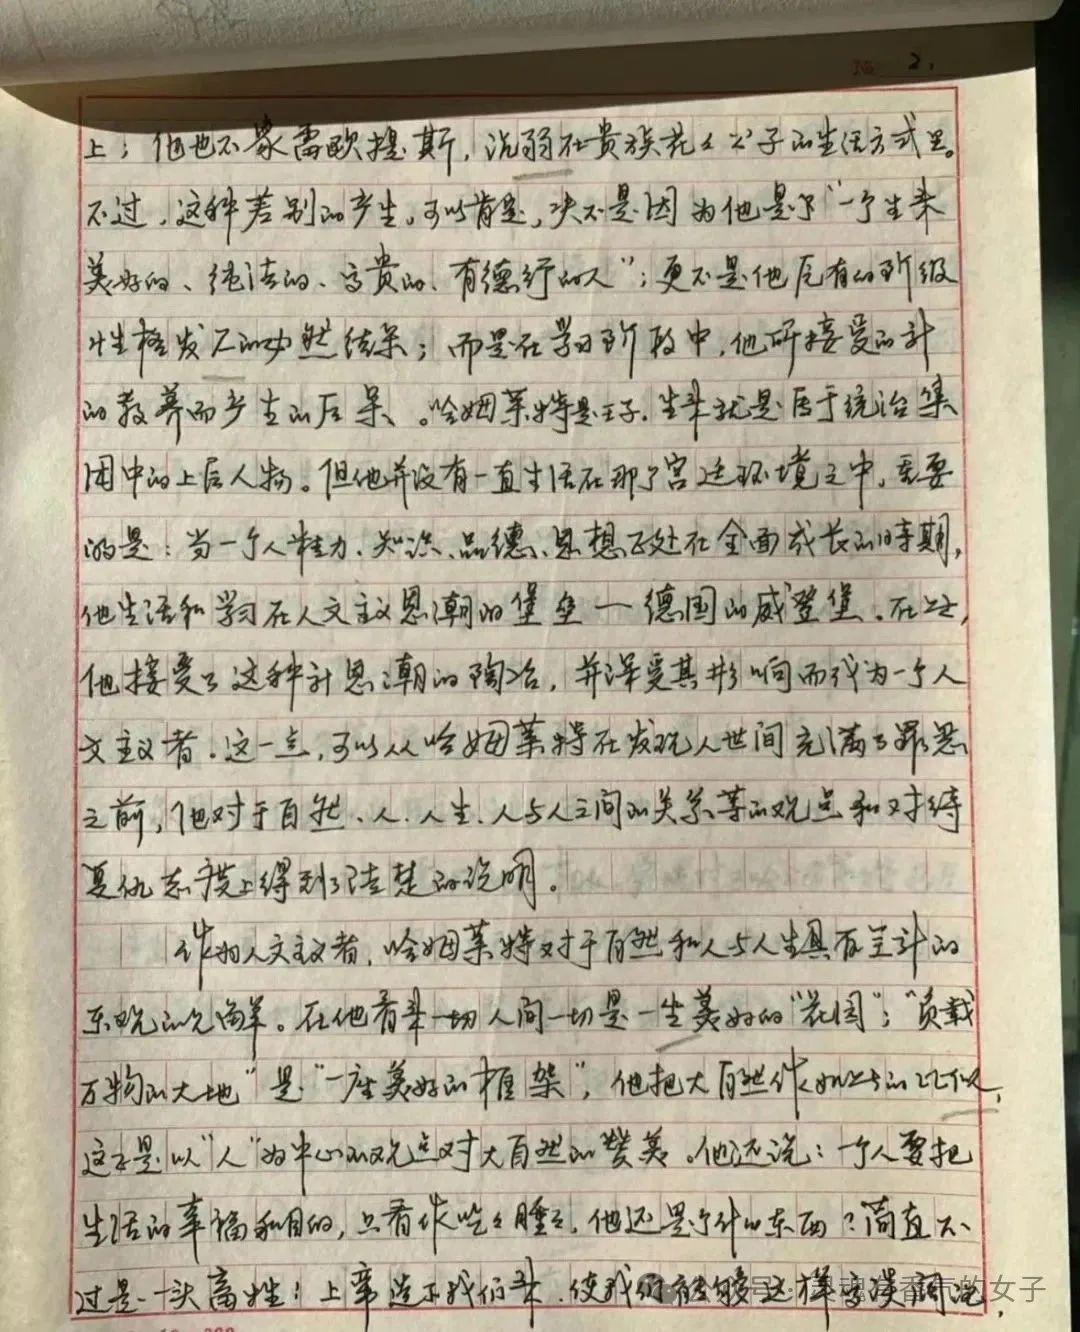 № 2.
上；他也不象雷欧提斯，沉弱在贵族花々公子的生活方式里。
不过，这种差别的产生，可以肯定，决不是因为他是个“一个生来
美好的、纯洁的、高贵的、有德行的人”；更不是他原有的阶级
性格发展的必然结果；而是在学习阶段中，他所接受的
的教养而产生的后果。哈姆莱特是王子，生来就是属于统治集
团中的上层人物。但他并没有一直生活在那个宫廷环境之中，重要
的是：当一个人精力、知识、品德、思想正处在全面成长的时期，
他生活和学习在人文主义思潮的堡垒一德国的威登堡。在这，
他接受了这种思潮的陶冶，并深受其影响而成为一个人
文主义者。这一点，可以从哈姆莱特在发现人世间充满了罪恶
之前，他对于自然、人、人生、人与人之间的关系等的观点和对待
复仇态度上得到了清楚的说明。
作为人文主义者，哈姆莱特对于自然和人与人生具有
乐观的见解。在他看来一切人间一切是一座美好的“花园”；“负载
万物的大地”是“一座美好的框架”，他把大自然作如此的比似，
这正是以“人”为中心的观点对大自然的赞美。他还说：一个人要把
生活的幸福和目的，只看作吃々睡々，他还是个什么东西？简直不
过是一头畜牲！上帝造下我们来，使我们能够这样高谈阔论，
公众号·灵魂有香气的女子